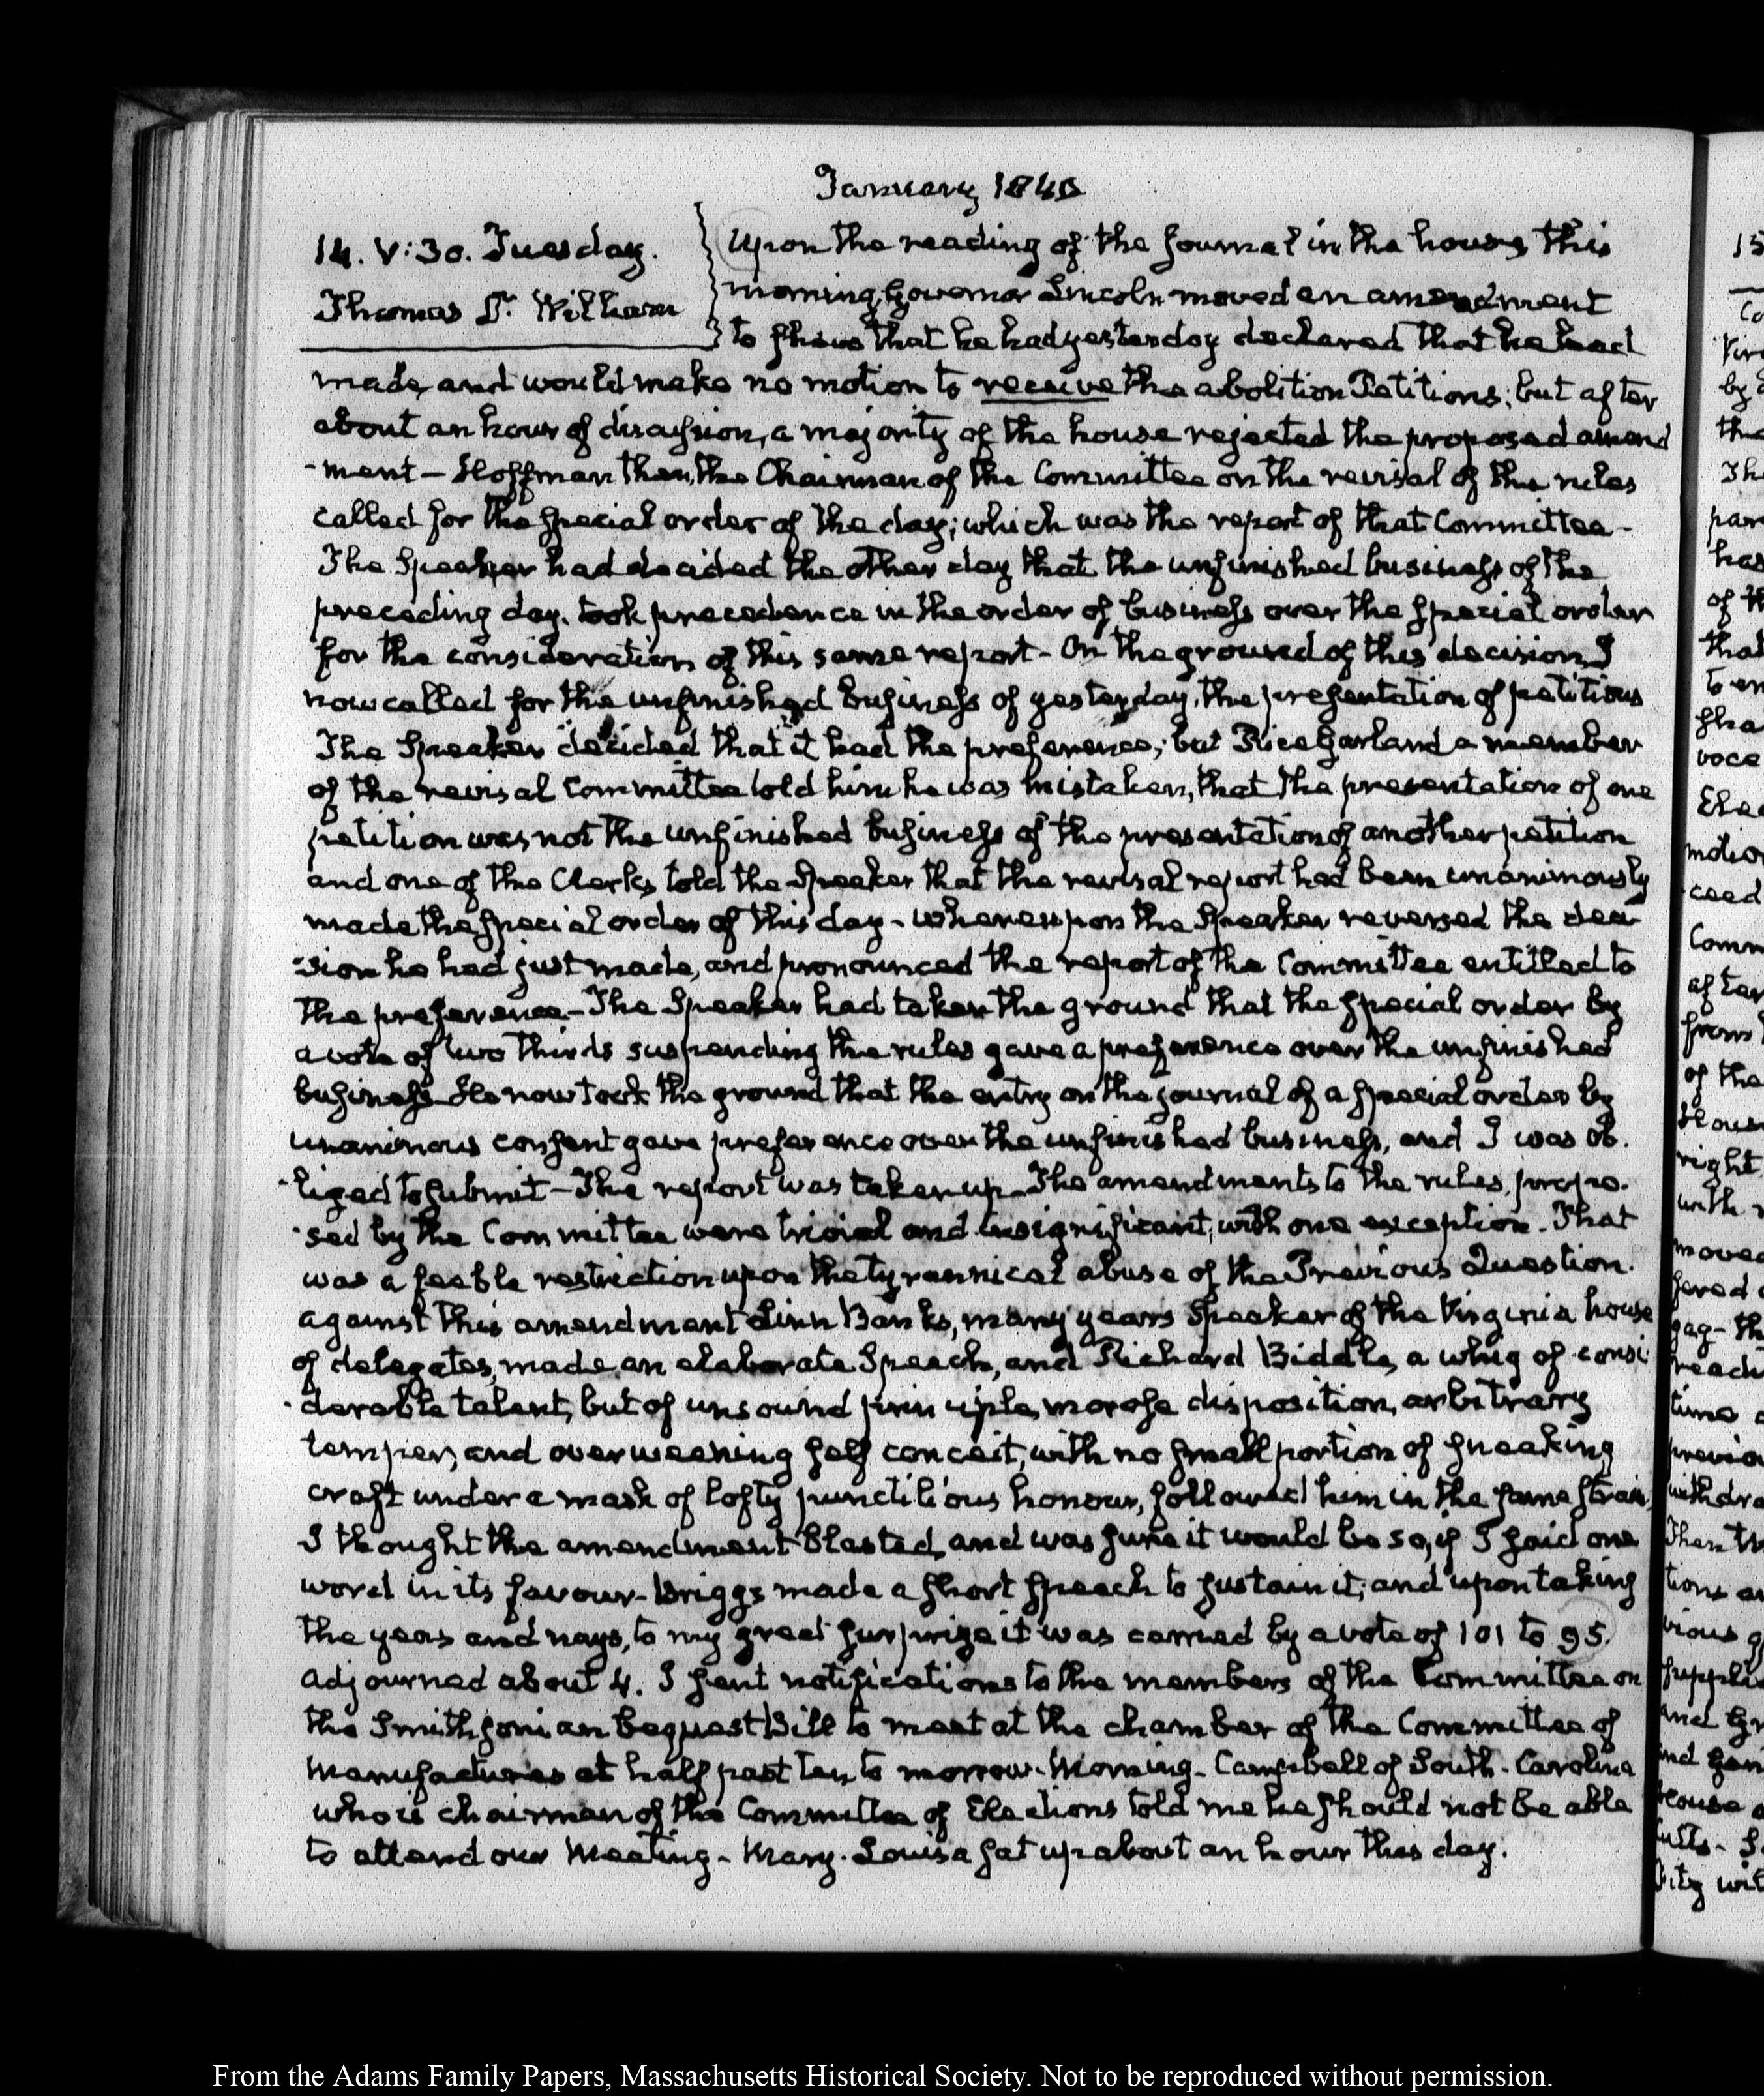 January 1840
14. V:30. Tuesday.
Thomas D. William
Upon the reading of the Journal in the house this
morning, Governor Lincoln moved an amendment
to shew that he had yesterday declared that he had
made, and would make no motion to receive the abolition Petitions; but after
about an hour of discussion, a majority of the house rejected the proposed amend
-ment — Hoffman then, the Chairman of the Committee on the revisal of the rules
called for the special order of the day; which was the report of that Committee -
The Speaker had decided the other day that the unfinished business of the
preceding day, took precedence in the order of business over the special order
for the consideration of this same report - On the ground of this decision I
now called for the unfinished business of yesterday, the presentation of petitions
The Speaker decided that it had the preference; but Rice Garland a member
of the revisal Committee told him he was mistaken, that the presentation of one
petition was not the unfinished business of the presentation of another petition
and one of the Clerks told the Speaker that the revisal report had been unanimously
made the special order of this day - whereupon the Speaker reversed the deci
-sion he had just made, and pronounced the report of the Committee entitled to
the preference - The Speaker had taken the ground that the special order by
a vote of two thirds suspending the rules gave a preference over the unfinished
business - He now took the ground that the entry on the journal of a special order by
unanimous consent gave preference over the unfinished business, and I was ob.
-liged to submit - The report was taken up - The amendments to the rules, propo.
-sed by the Committee were trivial and insignificant, with one exception. That
was a feeble restriction upon the tyrannical abuse of the Previous Question.
against this amendment Linn Banks, many years Speaker of the Virginia house
of delegates, made an elaborate Speech, and Richard Biddle, a whig of consi
-derable talent, but of unsound principle, morose disposition, arbitrary
temper, and overweening self conceit, with no small portion of sneaking
craft under a mask of lofty punctilious honour, followed him in the same strain,
I thought the amendment blasted, and was sure it would be so, if I said one
word in its favour - Briggs made a short speech to sustain it; and upon taking
the yeas and nays, to my great surprize it was carried by a vote of 101 to 95.
adjourned about 4. I sent notifications to the members of the Committee on
the Smithsonian bequest Bill to meet at the chamber of the Committee of
Manufactures at half past ten to morrow-Morning - Campbell of South-Carolina
who is chairman of the Committee of Elections told me he should not be able
to attend our Meeting - Mary-Louisa sat up about an hour this day.
From the Adams Family Papers, Massachusetts Historical Society. Not to be reproduced without permission.